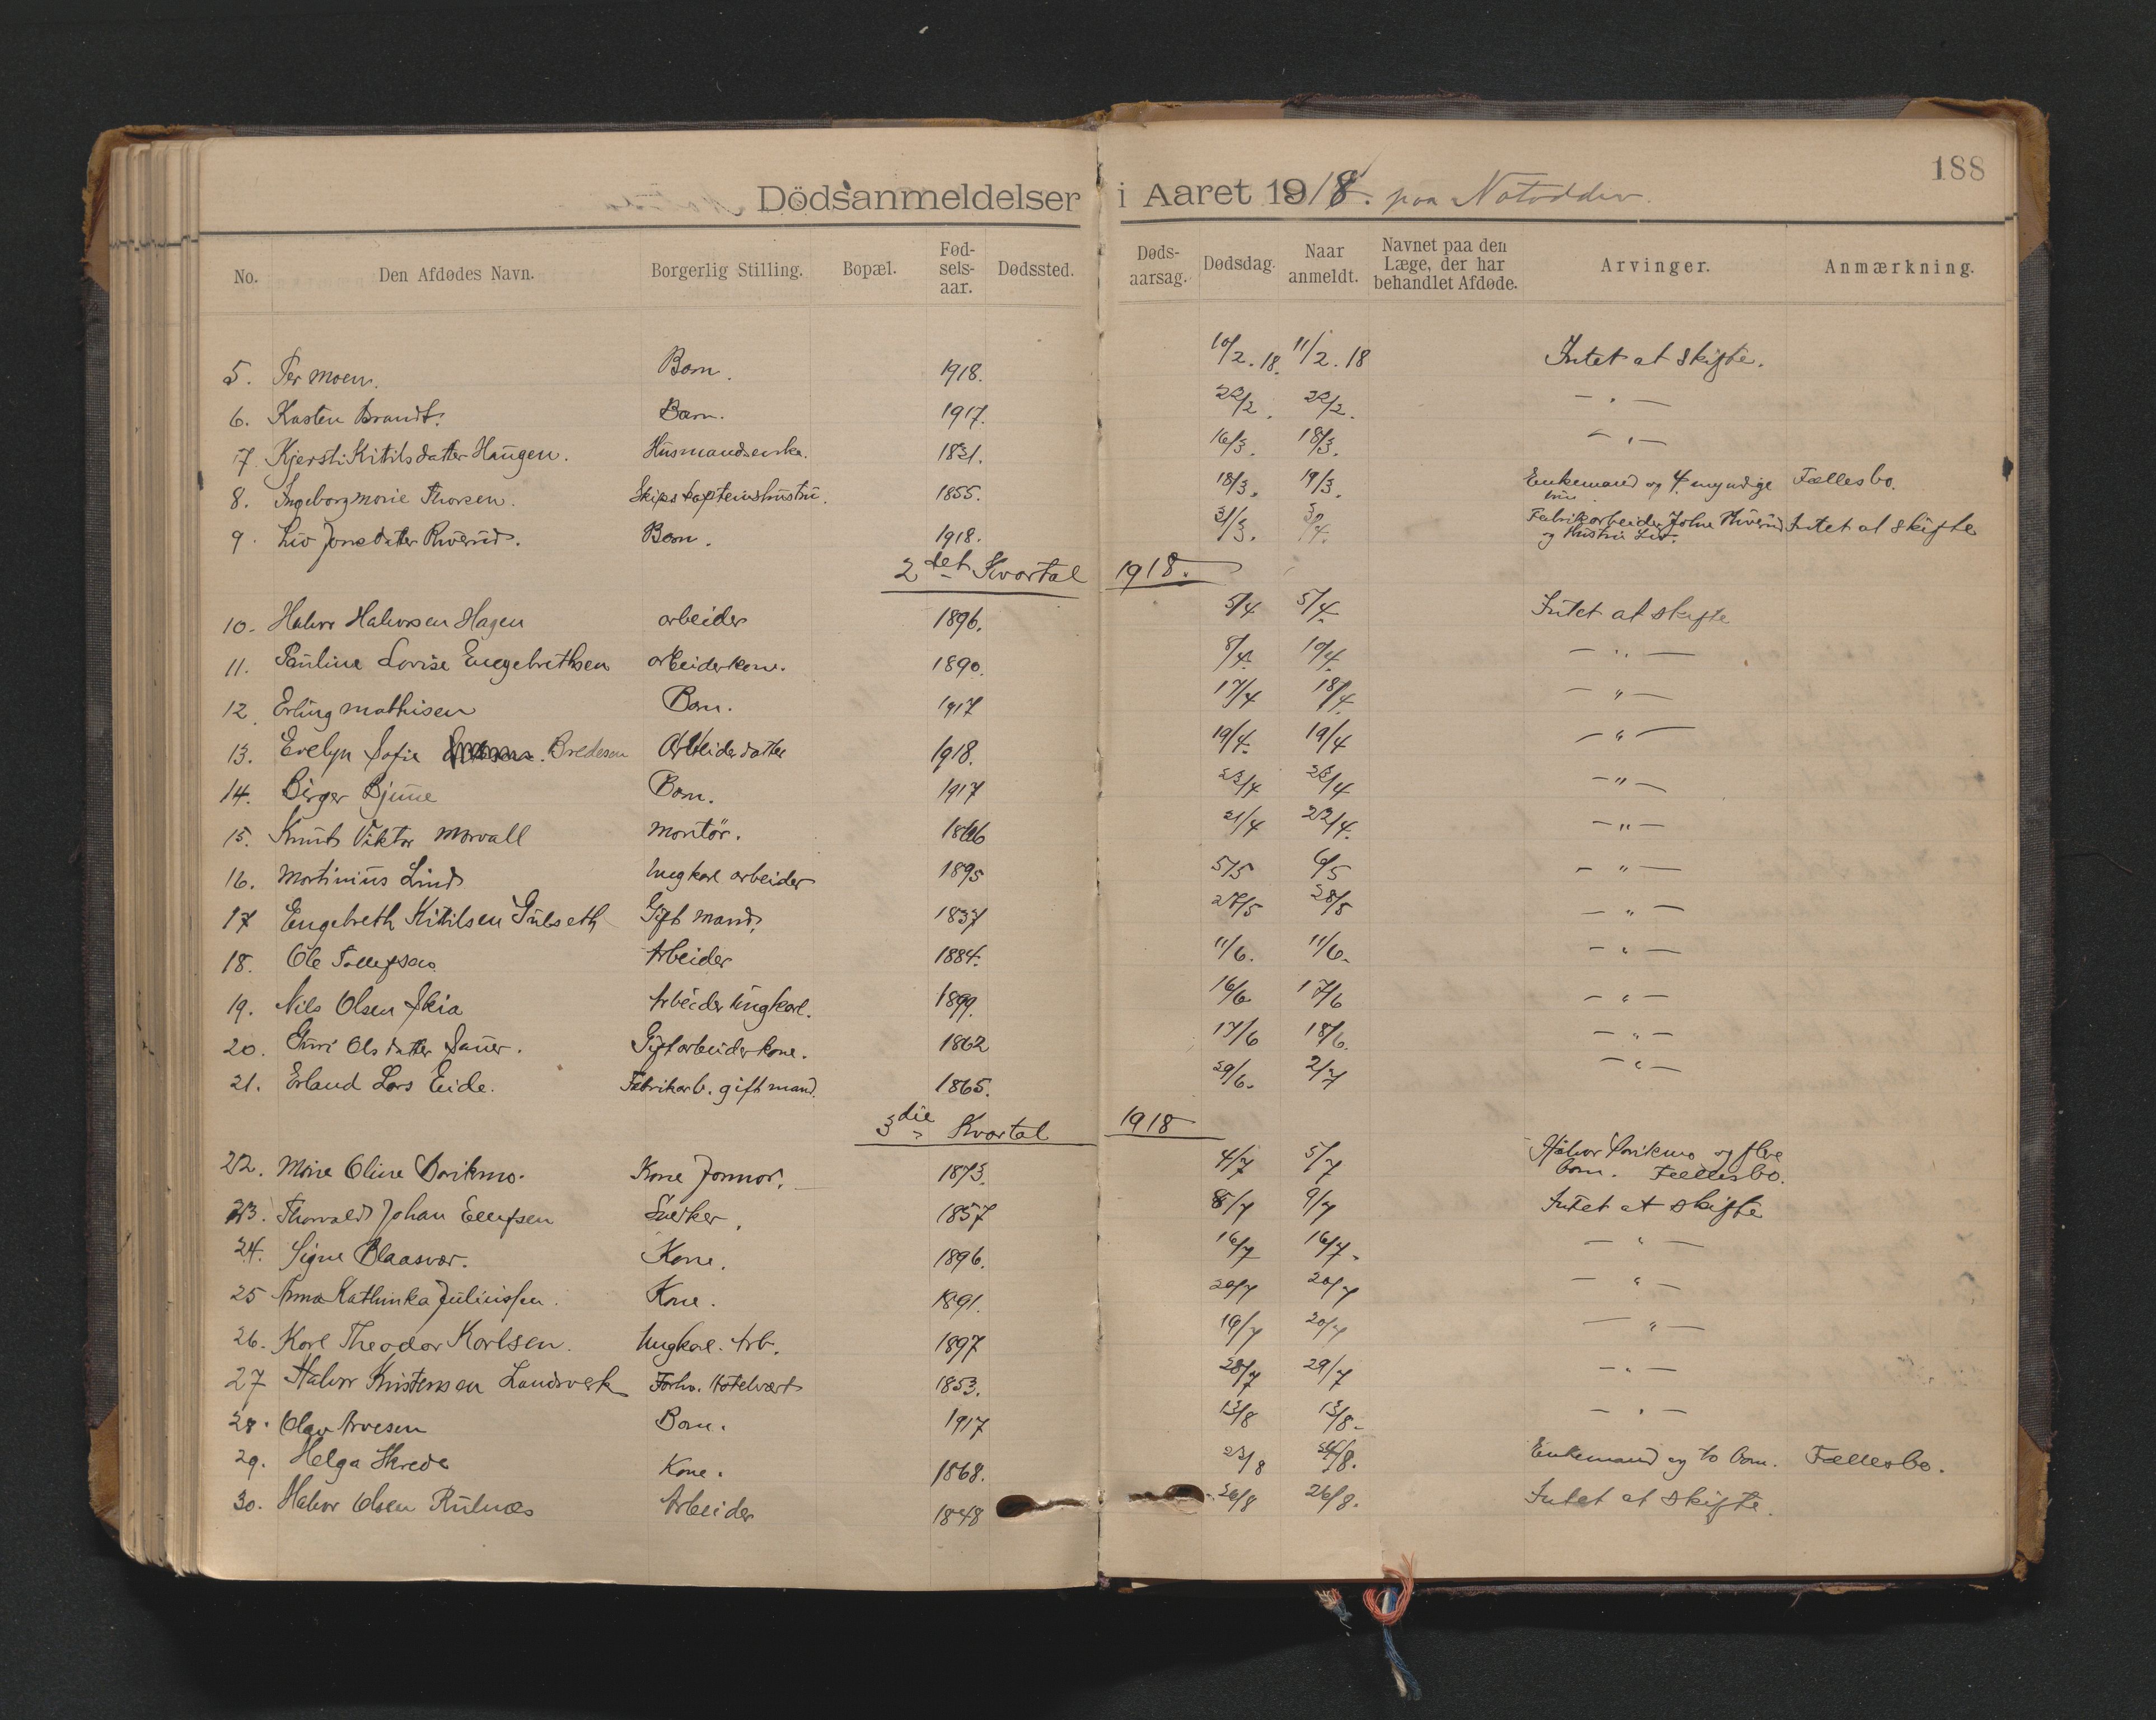 188
Dödsanmeldelser i Aaret 1918. paa Notodden.
No. Den Afdødes Navn. Borgerlig Stilling. Bopæl. Fød-sels-aar. Dødssted. Døds-aarsag. Dødsdag. Naar anmeldt. Navnet paa den Læge, der har behandlet Afdøde. Arvinger. Anmærkning.
5. Per Moen. Barn. 1918. 10/2.18. 11/2.18 Intet at skifte.
6. Kasten Brandt. Barn. 1917. 22/2. 22/2. — " —
7 Kjersti Kitilsdatter Haugen. Husmandsenke. 1831. 16/3. 18/3. — " —
8. Ingeborg Marie Thorsen. Skipskapteinshustru. 1855. 18/3. 19/3. Enkemand og 4 myndige Fællesbo.
børn.
9. Liv Jonsdatter Barn. 1918. 31/3. Fabrikarbeider John Intet at skifte
og Hustru Liv.
2det Kvartal 1918.
10. Halvor Halvorsen Hagen arbeider 1896. 5/4 5/4. Intet at skifte
11. Pauline Lovise Engebrethsen arbeiderkone. 1890. 8/4. 10/4. — " —
12. Erling Mathisen Barn. 1917 17/4 18/4. — " —
13. Evelyn Sofie Bredesen Arbeiderdatter 1918. 19/4. 19/4 — " —
14. Birger Bjerue Barn. 1917 23/4 23/4 — " —
15. Knut Viktor Morvall Montör. 21/4 22/4. — " —
16. Martinius Lind Ungkarl arbeider 1895 5/5 6/5 — " —
17 Engebreth Kitilsen Gulseth Gift mand. 1837 27/5 28/5 — " —
18. Ole Tollefsen Arbeider 1884. 11/6. 11/6. — " —
19. Nils Olsen Skia Arbeider Ungkarl. 1899. 16/6 17/6 — " —
20. Guri Olsdatter Sauer. Gift arbeiderkone. 1862 17/6 18/6. — " —
21. Erland Lars Eide. Fabrikarb. gift mand. 1865. 29/6. 2/7 — " —
3die Kvartal 1918
22. Marie Oline Kone Jormor. 1873. 4/7 5/7 Halvor og flere
barn. Fællesbo.
23. Thorvald Johan Ellefsen Snekker. 1857 8/7 9/7 Intet at skifte
24. Signe Blaasvær. Kone. 1896. 16/7 16/7. — " —
25 Anna Kathinka Juliussen. Kone. 1891. 20/7 20/7 — " —
26. Karl Theodor Karlsen. Ungkarl. Arb. 1897 19/7 20/7 — " —
27 Halvor Kristensen Landsverk Forhv. Hotelvært 1853. 28/7 29/7 — " —
28. Olav Arvesen Barn. 1917 13/8 13/8. — " —
29. Helga Skrede Kone. 1868. 23/8 24/8. Enkemand og to barn. Fællesbo.
30. Halvor Olsen Rulnæs Arbeider 1848 26/8 26/8. Intet at skifte.